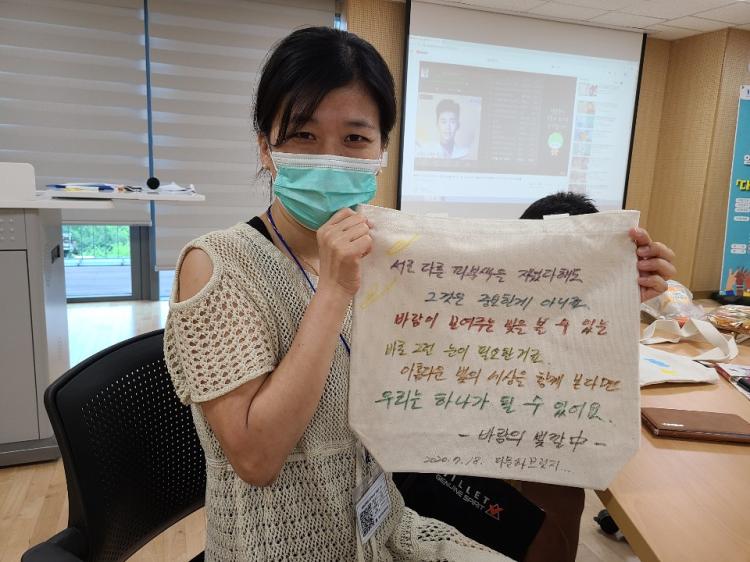 서로 다른 피부색을 지녔다해도
그것은 중요한게 아니죠
바람이 보여주는 빛을 볼 수 있는
바로 그런 눈이 필요한거죠.
아름다운 빛의 세상을 함께 본다면
우리는 하나가 될 수 있어요.
- 바람의 빛깔 中 -
2020.7.18.
MILLET
GENUINE SPIRIT